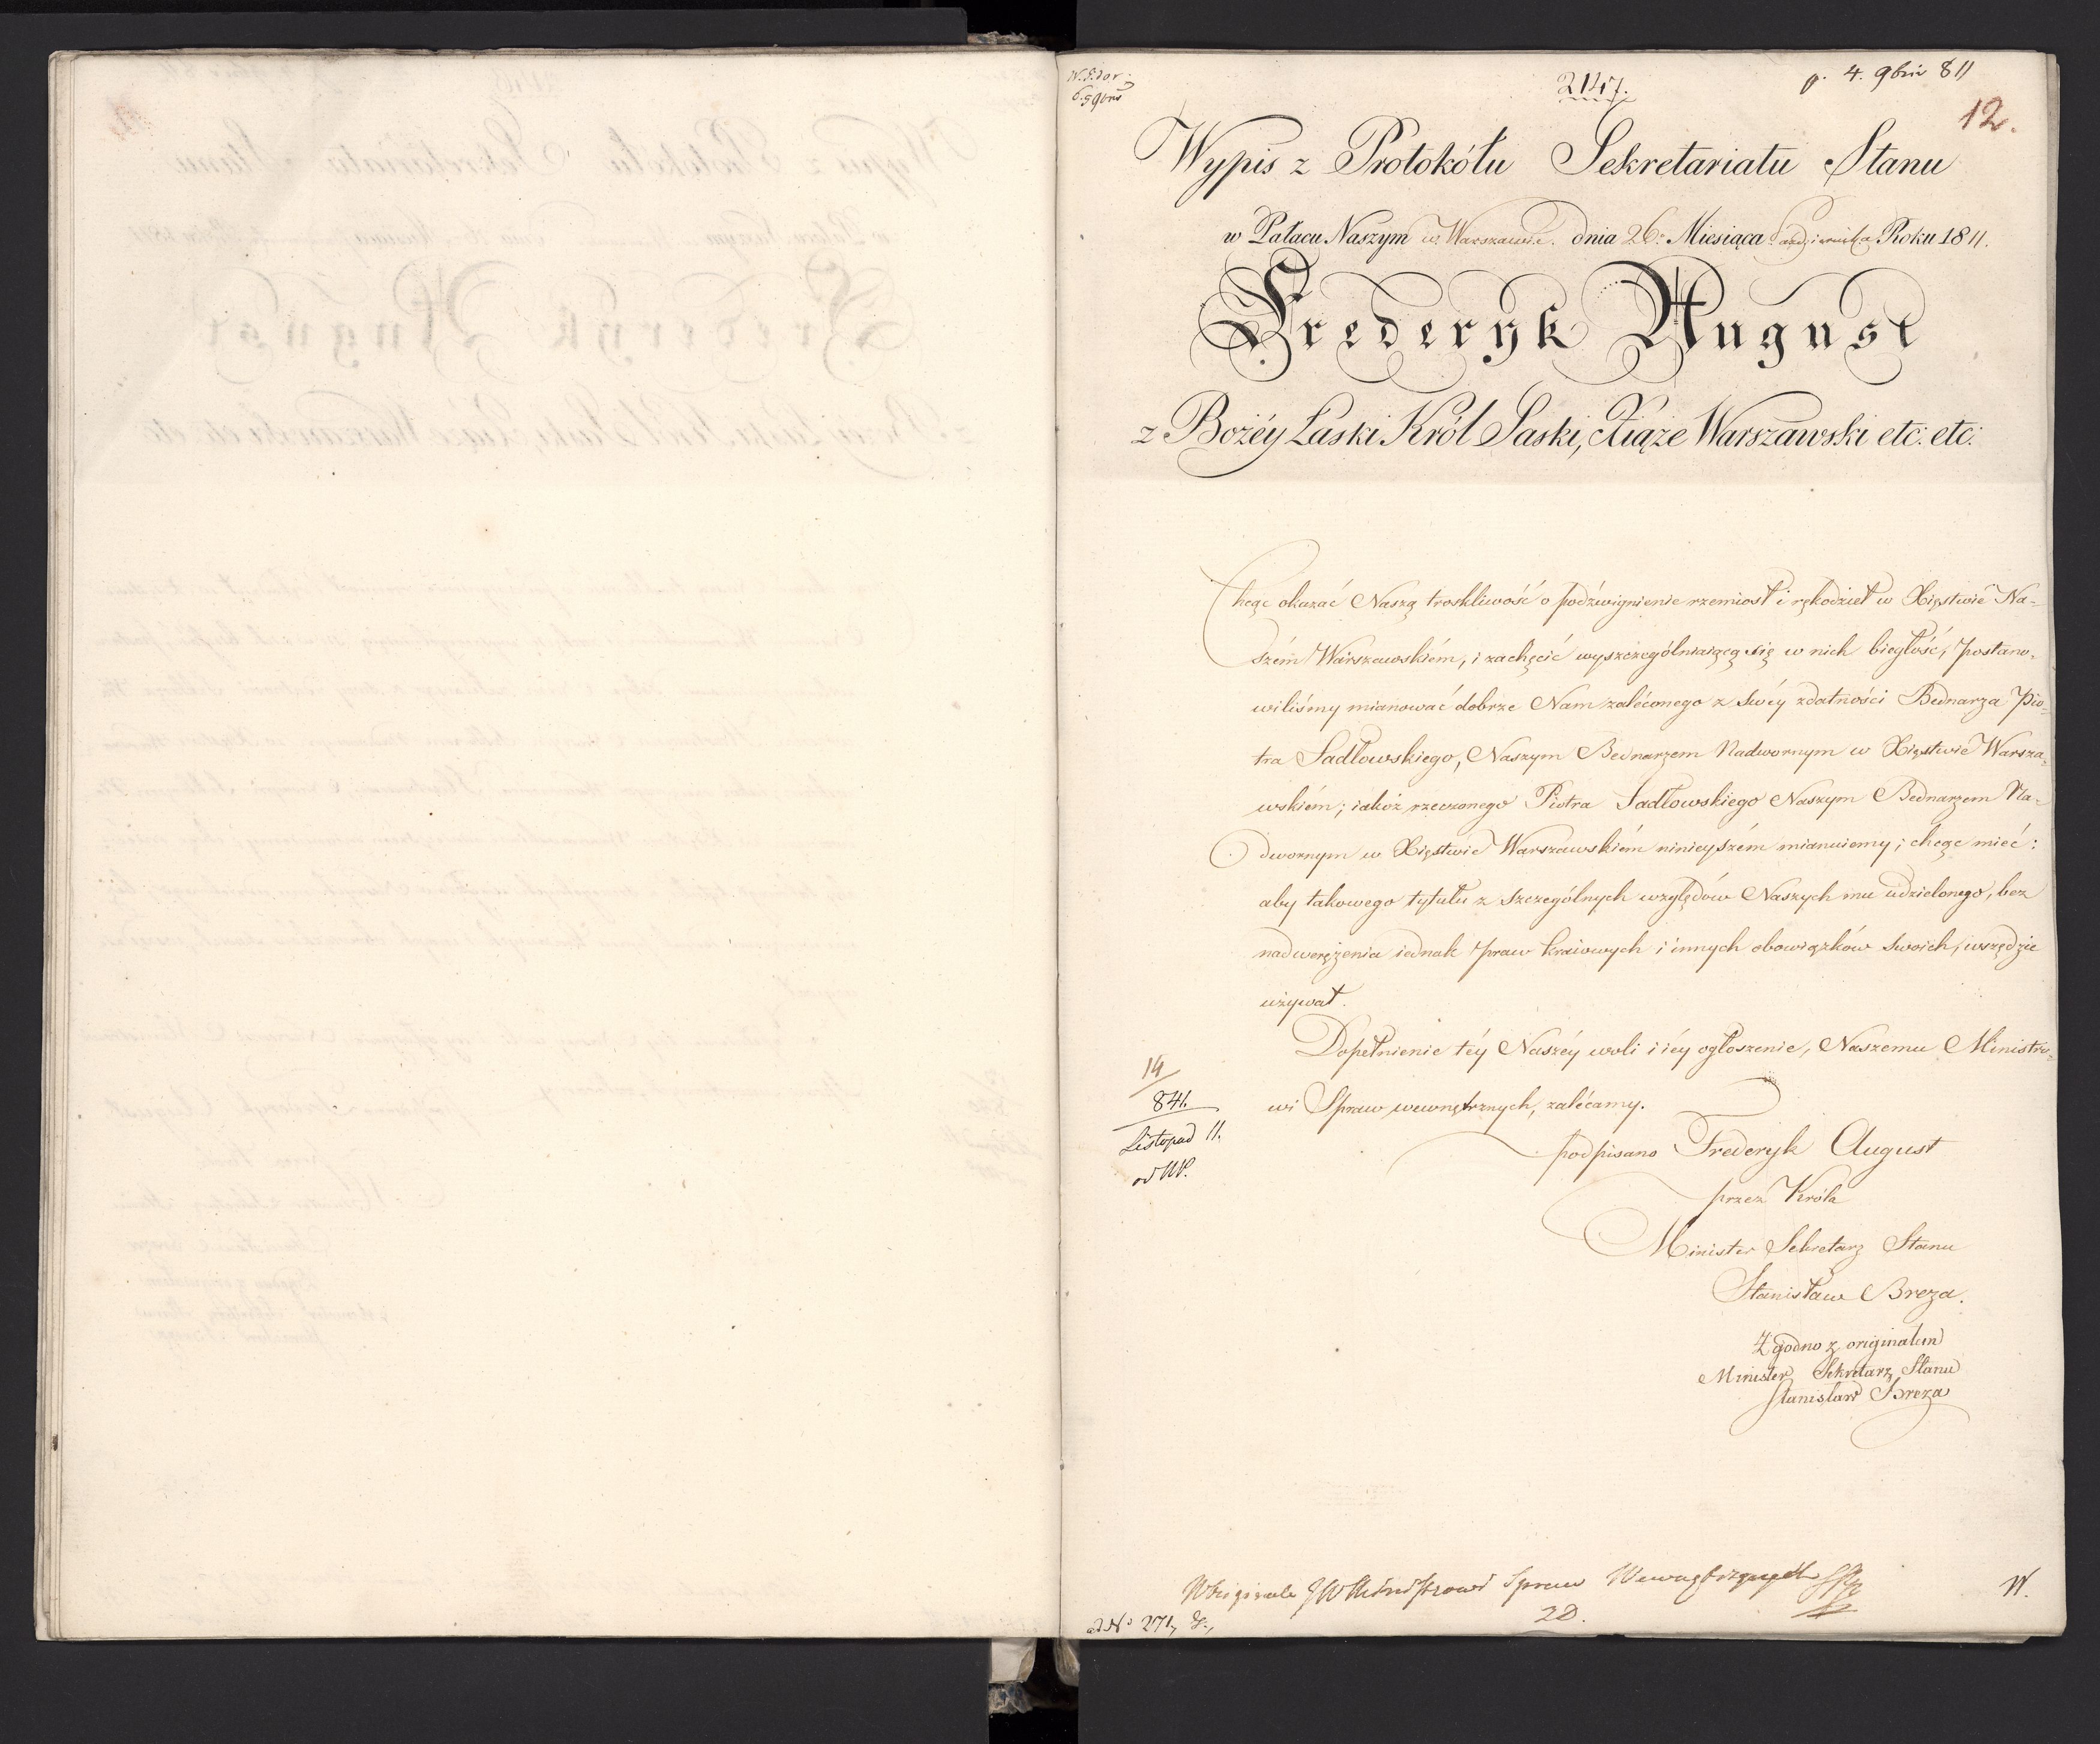 2147.
p. 4. 9bris 811
6. 9bris
12.
Wypis z Protokółu Sekretariatu Stanu
w Pałacu Naszym w Warszawie. dnia 26. Miesiąca Października Roku 1811.
Frederyk August
z Bożéy Łaski Król Saski, Xiąże Warszawski etc: etc:
Chcąc okazać Naszą troskliwość o podźwignienie rzemiosł i rękodzieł w Xięstwie Na-
szém Warszawskiém, i zachęcić wyszczególniaiącą się w nich biegłość, postano-
wiliśmy mianować dobrze Nam zaléconego z swéy zdatności Bednarza Pio-
tra Sadłowskiego, Naszym Bednarzem Nadwornym w Xięstwie Warsza-
wskiém; iakoż rzeczonego Piotra Sadłowskiego Naszym Bednarzem Na-
dwornym w Xięstwie Warszawskiém ninieyszém mianuiemy; chcąc mieć:
aby takowego tytułu z szczególnych względów Naszych mu udzielonego, bez
nadwerężenia iednak praw kraiowych i innych obowiązków swoich, wszędzie
używał.
Dopełnienie téy Naszéy woli i iéy ogłoszenie, Naszemu Ministro-
wi Spraw wewnętrznych, zalécamy.
14
841.
Listopad 11.
od
podpisano Frederyk August
przez Króla
Minister Sekretarz Stanu
Stanisław Breza.
Zgodno z originałem
Minister Sekretarz Stanu
Stanisław Breza
JW Ministrowi Spraw Wewnętrznych
W.
ad No 271,
2D.